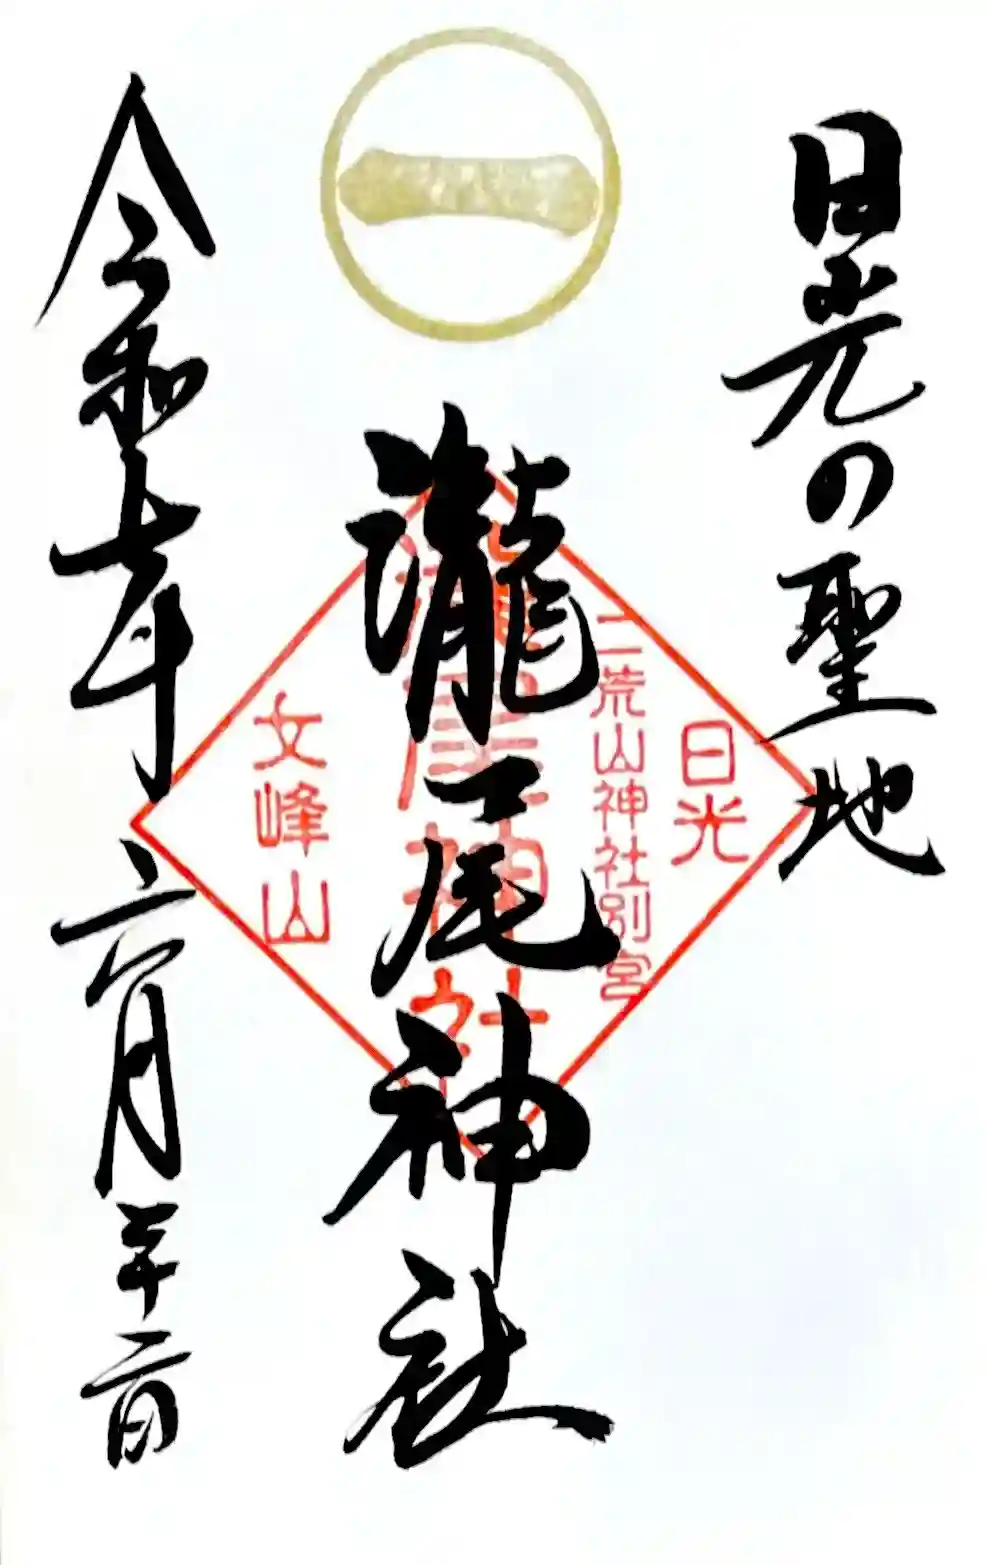 一
日光の聖地
瀧尾神社
令和七年六月二十二日
日光
二荒山神社別宮
瀧尾神社
文峰山